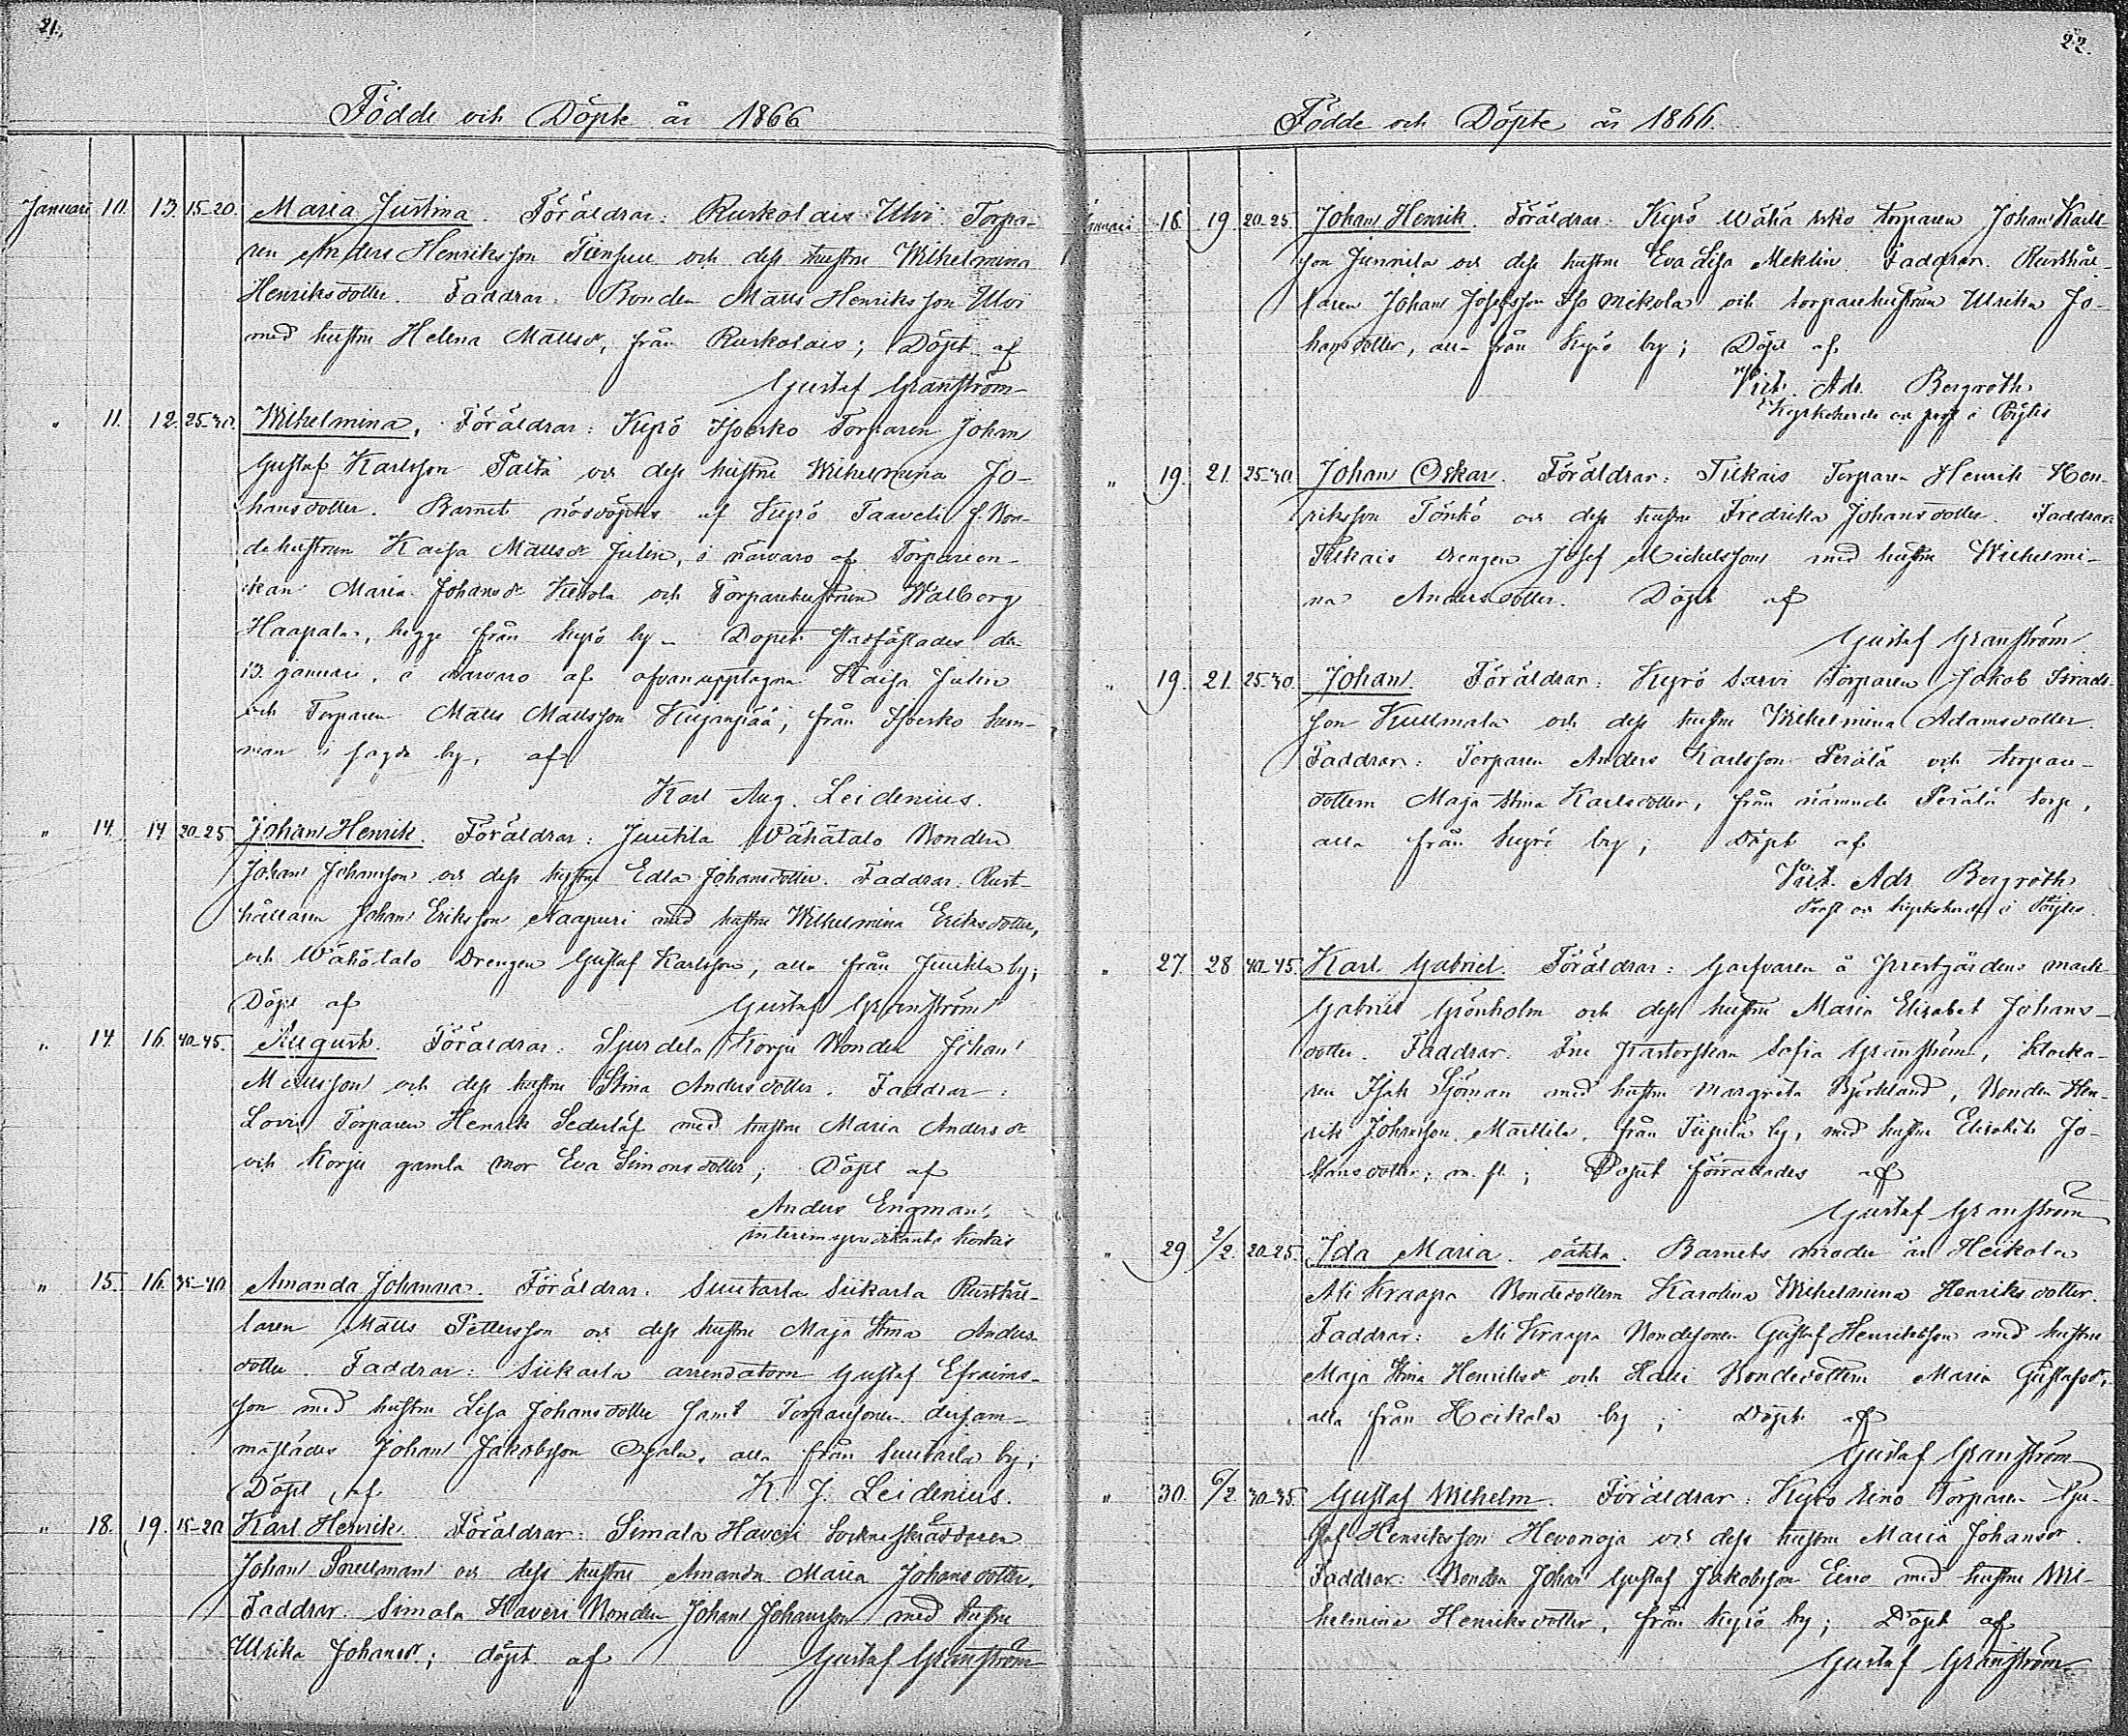 21.
Födde och Döpte år 1866
Januari 10. 13. 15-20. Maria Justina. Föräldrar: Ruskolais Ulvi Torpa-
ren Anders Henriksson och dess hustru Wilhelmina
Henriksdotter. Faddrar: Bonden Matts Henriksson Ulvi
med hustru Helena Mattsdr, från Ruskolais; Döpt af
Gustaf Granström
" 11. 12. 25-30. Wilhelmina. Föräldrar: Kyrö Torparen Johan
Gustaf Karlsson Palta och dess hustru Wilhelmina Jo-
hansdotter. Barnet nöddöptes af Kyrö Taaveli f. Bon-
dehustrun Kaisa Mattsdr Julin, i närvaro af Torpareen-
kan Maria Johansdr Ketola och Torparehustrun Walborg
Haapala, begge från Kyrö by. Dopet stadfästades den
13 januari, i närvaro af ofvanupptagna Kaisa Julin
och Torparen Matts Mattsson Kujanpää, från sam-
man i sagde by, af
Karl Aug. Leidenius.
" 14. 14. 20-25. Johan Henrik. Föräldrar: Juntila Wähätalo Bonden
Johan Johansson och dess hustru Edla Johansdotter. Faddrar: Rust-
hållaren Johan Eriksson Naapuri med hustru Wilhelmina Eriksdotter,
och Wähätalo Drengen Gustaf Karlsson, alla från Juntila by;
Döpt af Gustaf Granström
" 14. 16. 40-45. August. Föräldrar: Korju Bonden Johan
Mattsson och dess hustru Stina Andersdotter. Faddrar:
Torparen Henrik Sederlöf med hustru Maria Andersdr
och Korju gamla mor Eva Simonsdotter; Döpt af
Anders Engman,
" 15. 16. 35-40. Amanda Johanna. Föräldrar: Suutarla Siikarla Rusthål-
laren Matts Pettersson och dess hustru Maja Stina Anders-
dotter. Faddrar: Siikarla arrendatorn Gustaf Efraims-
son med hustru Lisa Johansdotter samt Torparesonen dersam-
mastädes Johan Jakobsson Ojala, alla från Suutarla by;
Döpt af K. J. Leidenius.
" 18. 19. 15-20. Karl Henrik. Föräldrar: Simala Haveri Sockneskräddaren
Johan Snellman och dess hustru Amanda Maria Johansdotter.
Faddrar: Simala Haveri Bonden Johan Johansson med hustru
Ulrika Johansdr; döpt af Gustaf Granström
22.
Födde och Döpte år 1866.
Januari 16. 19. 20-25. Johan Henrik. Föräldrar: Kyrö Wähä torparen Johan Karls-
son Junnila och dess hustru Eva Lisa Meklin. Faddrar: Rusthål-
laren Johan Josefsson Iso Mikola och torparehustrun Ulrika Jo-
hansdotter, alla från Kyrö by; Döpt af
Vict. Adr. Bergroth
Kyrkoherde och prost i Pöytis
" 19. 21. 25-30. Johan Oskar. Föräldrar: Torparen Henrik Hen-
riksson Tönkö och dess hustru Fredrika Johansdotter. Faddrar:
drengen Josef Mickelsson med hustru Wilhelmi-
na Andersdotter. Döpt af
Gustaf Granström.
" 19. 21. 25-30. Johan. Föräldrar: Kyrö Sarvi Torparen Jakob Israels-
son Kullmala och dess hustru Wilhelmina Adamsdotter.
Faddrar: Torparen Anders Karlsson Perälä och torpare-
dottern Maja Stina Karlsdotter, från nämnde Perälä torp,
alla från Kyrö by; Döpt af
Vict. Adr. Bergroth
Prost och kyrkoherde i Pöytis.
" 27. 28. 40-45. Karl Gabriel. Föräldrar: Garfvaren å Prestgårdens mark
Gabriel Grönholm och dess hustru Maria Elisabet Johans-
dotter. Faddrar: Fru Pastorskan Sofia Granström, Klocka-
ren Isak Sjöman med hustru Margreta Björklund, Bonden Hen-
rik Johansson Marttila, från by, med hustru Elisabet Jo-
hansdotter; m. fl.; Dopet förrättades af
Gustaf Granström
" 29. 2/2. 20-25. Ida Maria. oäkta. Barnets moder är Heikola
Ali Kraapa Bondedottern Karolina Wilhelmina Henriksdotter.
Faddrar: Ali Kraapa Bondesonen Gustaf Henriksson med hustru
Maja Stina Henriksdr och Bondedottern Maria Gustafsdr,
alla från Heikola by; Döpt af
Gustaf Granström
" 30. 6/2. 30-35. Gustaf Wilhelm. Föräldrar: Kyrö Eino Torparen Gu-
staf Henriksson Hevonoja och dess hustru Maria Johansdr.
Faddrar: Bonden Johan Gustaf Jakobsson Eino med hustru Wil-
helmina Henriksdotter, från Kyrö by; Döpt af
Gustaf Granström